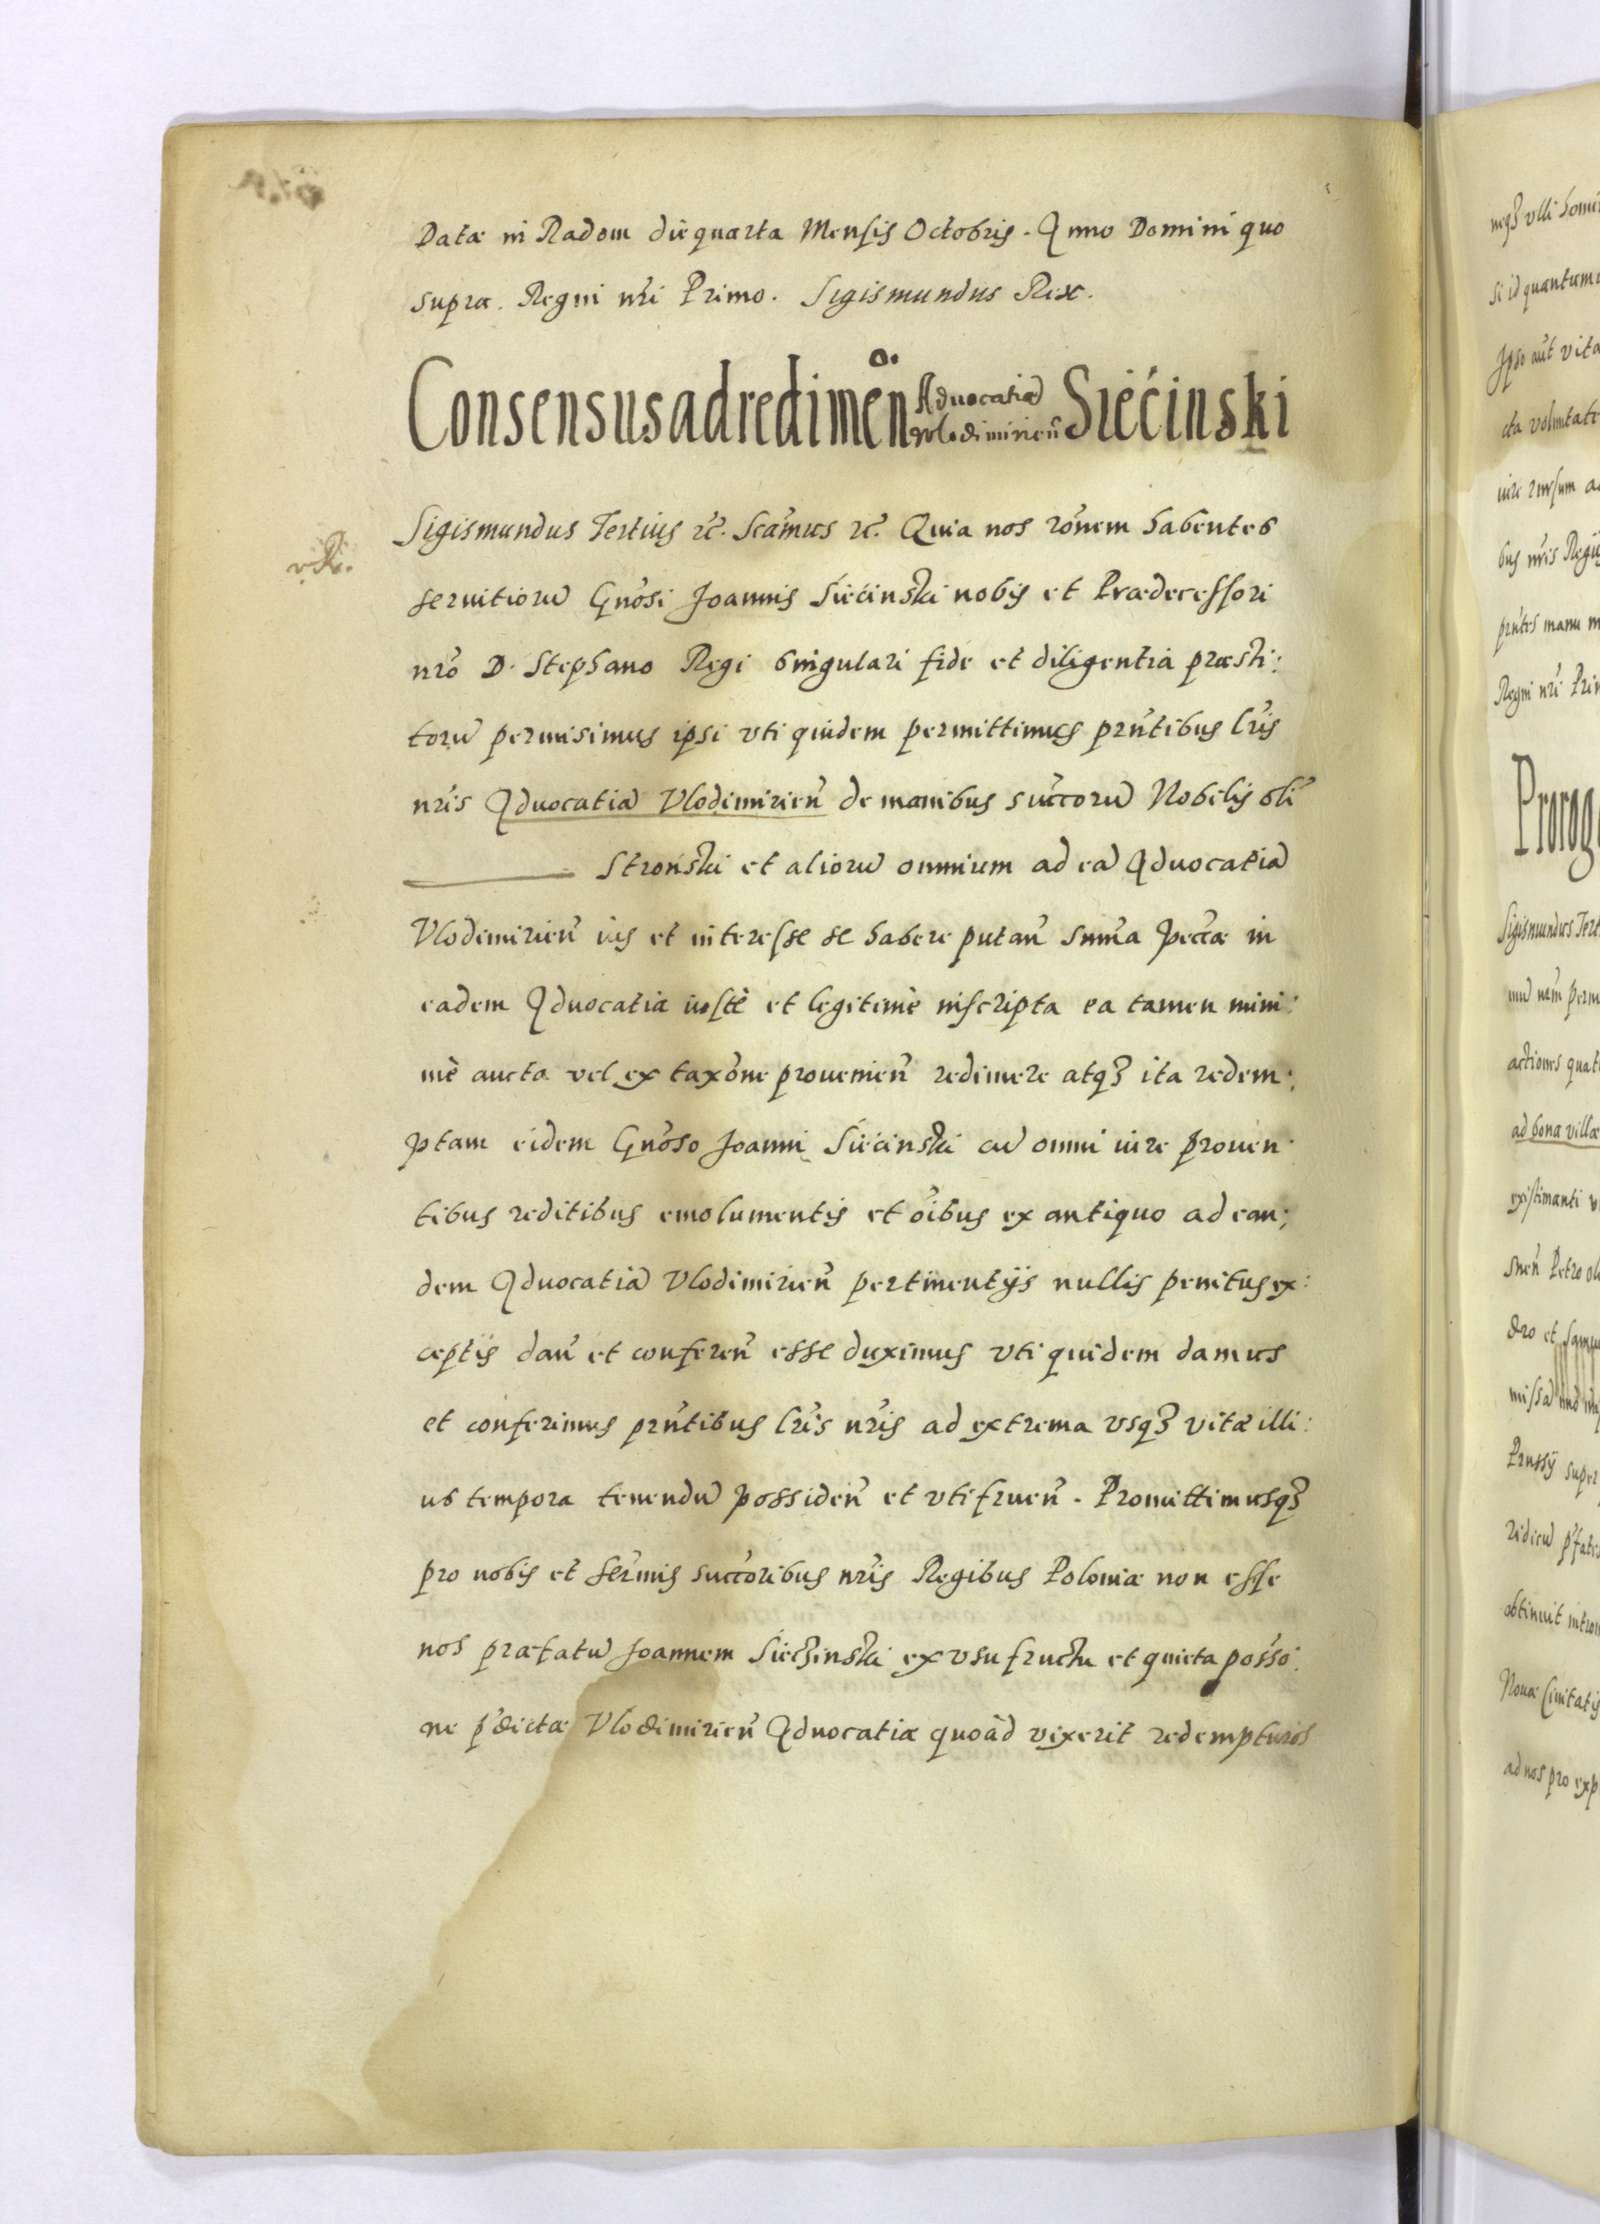 Datæ in Radom die quarta Mensis Octobris. Anno Domini quo
supra. Regni nr̃i Primo. Sigismundus Rex.
Consensus ad redimeñ Advocatiã Wlodimirieñ Siećinski
Sigismundus Tertius rc̃. Scãmus rc̃. Quia nos rõnem habentes
servitiorũ Gnõsi Joannis Siećinski nobis et Prædecessori
nrõ D. Stephano Regi singulari fide et diligentia præsti:
torũ permisimus ipsi uti quidem permittimus prñtibus lr̃is
nr̃is Advocatiã Vlodimirieñ de manibus succ̃orũ Nobilis oli͂
Stroński et aliorũ omnium ad eã Advocatiã
Vlodimirieñ ius et interesse se habere putañ sum̃a pecc̃æ in
eadem Advocatia iustè et legitimè inscripta ea tamen mini:
mè aucta vel ex taxõne provenieñ redimere atqꝫ ita redem:
ptam eidem Gnõso Joanni Siećinski cũ omni iure proven:
tibus reditibus emolumentis et õibus ex antiquo ad ean:
dem Advocatiã Vlodimirieñ pertinentijs nullis penitus ex:
ceptis dañ et confereñ esse duximus uti quidem damus
et conferimus prñtibus lr̃is nr̃is ad extrema usqꝫ vitæ illi:
us tempora tenendũ possideñ et utifrueñ. Promittimusqꝫ
pro nobis et Ser̃mis succ̃oribus nr̃is Regibus Poloniæ non esse
nos præfatũ Joannem Sieczinski ex usufructu et quieta possõ:
ne p̃dictæ Vlodimirieñ Advocatiæ quoàd vixerit redempturos
neqꝫ ulli
si id quantum
Ipso aũt vita
bus nr̃is Regi
prñtes manu
Regni nr̃i Pri
Prorog
Sigismundus Tert
actiones
ad bona villæ
existimanti
Petro
dro et
Prussÿ super
obtinuit
Novæ Civitatis
ad nos pro exp